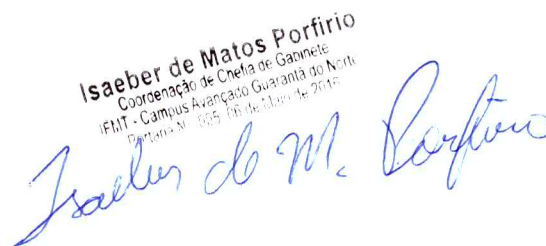 Isaeber de Matos Porfirio
Coordenação de Chefia de Gabinete
IFMT - Campus Avançado Guarantã do Norte
Portaria Nº 06 de de
Isaeber de M. Porfirio